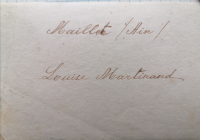 Maillot (Ain)
Louise Martinand